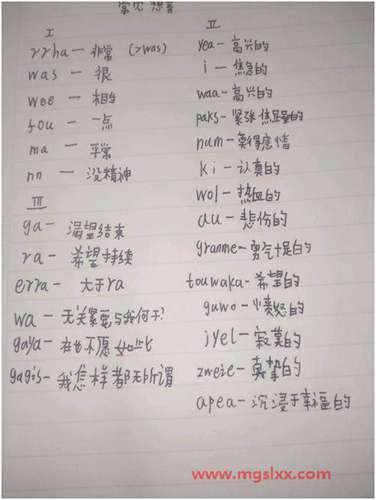 常见
I
rrha — 非常 (>was)
was — 很
wee — 相当
fou — 一点
ma — 平常
nn — 没精神
III
ga — 渴望结束
ra — 希望持续
erra — 大于ra
wa — 无关紧要与我何干?
gaya — 不愿如此
gagis — 我怎样都无所谓
II
yea — 高兴的
i — 焦急的
waa — 高兴的
paks — 紧张 的
num — 莫得感情
ki — 认真的
wol — 热血的
au — 悲伤的
granme — 勇气十足的
touwaka — 希望的
guwo — 愤怒的
jyel — 寂寞的
zweie — 真挚的
apea — 沉浸于幸福的
www.mgslxx.com